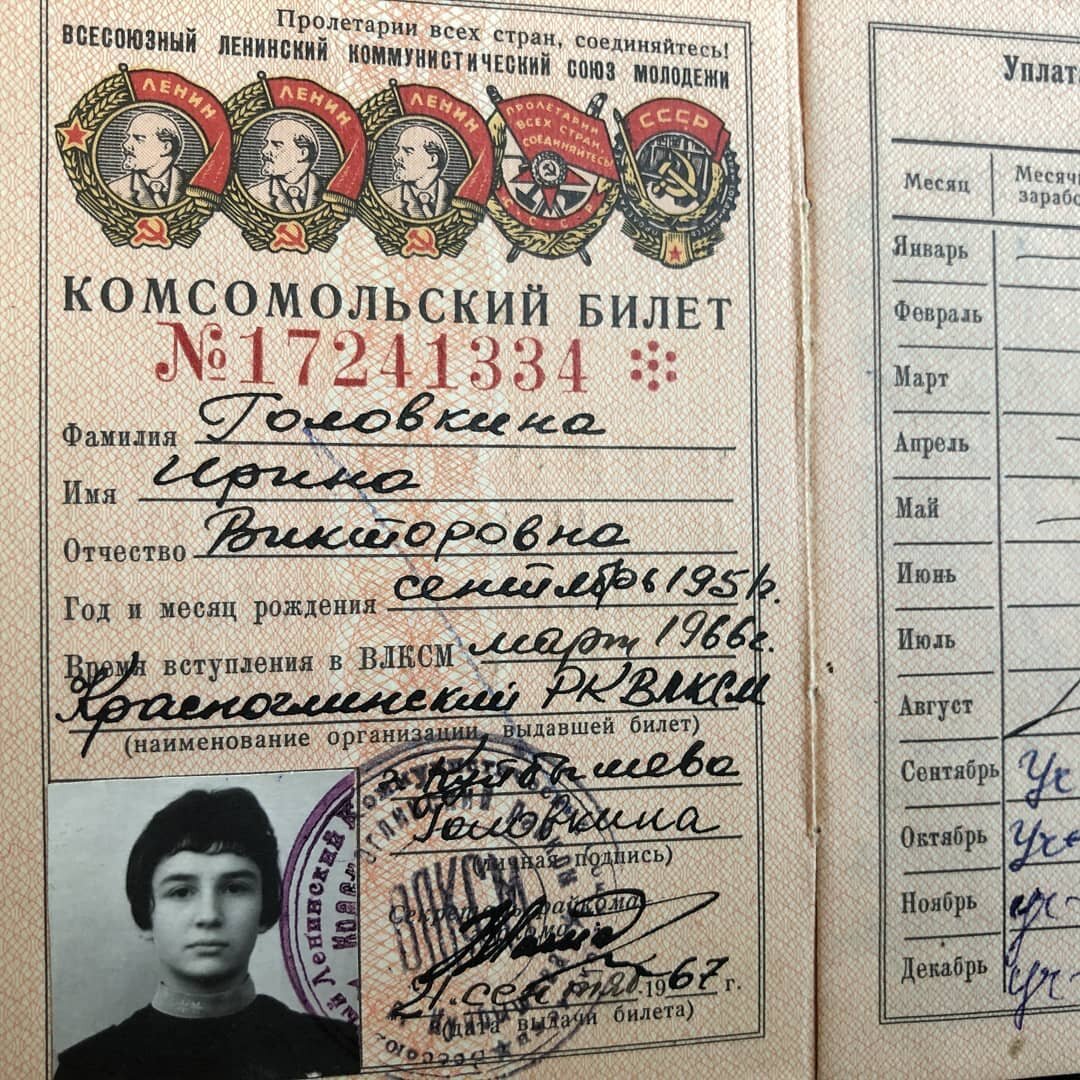 Пролетарии всех стран, соединяйтесь!
ВСЕСОЮЗНЫЙ ЛЕНИНСКИЙ КОММУНИСТИЧЕСКИЙ СОЮЗ МОЛОДЕЖИ
ЛЕНИН
ЛЕНИН
ЛЕНИН
ПРОЛЕТАРИИ
ВСЕХ СТРАН,
СОЕДИНЯЙТЕСЬ
СССР
КОМСОМОЛЬСКИЙ БИЛЕТ
№17241334
Фамилия Головкина
Имя Ирина
Отчество Викторовна
Год и месяц рождения сентябрь 1951г.
Время вступления в ВЛКСМ март 1966г.
Красноглинский РК ВЛКСМ
(наименование организации, выдавшей билет)
г. Куйбышева
Головкина
(личная подпись)
Секретарь райкома
ВЛКСМ
21 сентяб. 1967 г.
(дата выдачи билета)
Уплат
Месяц
Месячн
зарабо
Январь
Февраль
Март
Апрель
Май
Июнь
Июль
Август
Сентябрь Уч
Октябрь Уч
Ноябрь уч-
Декабрь уч-